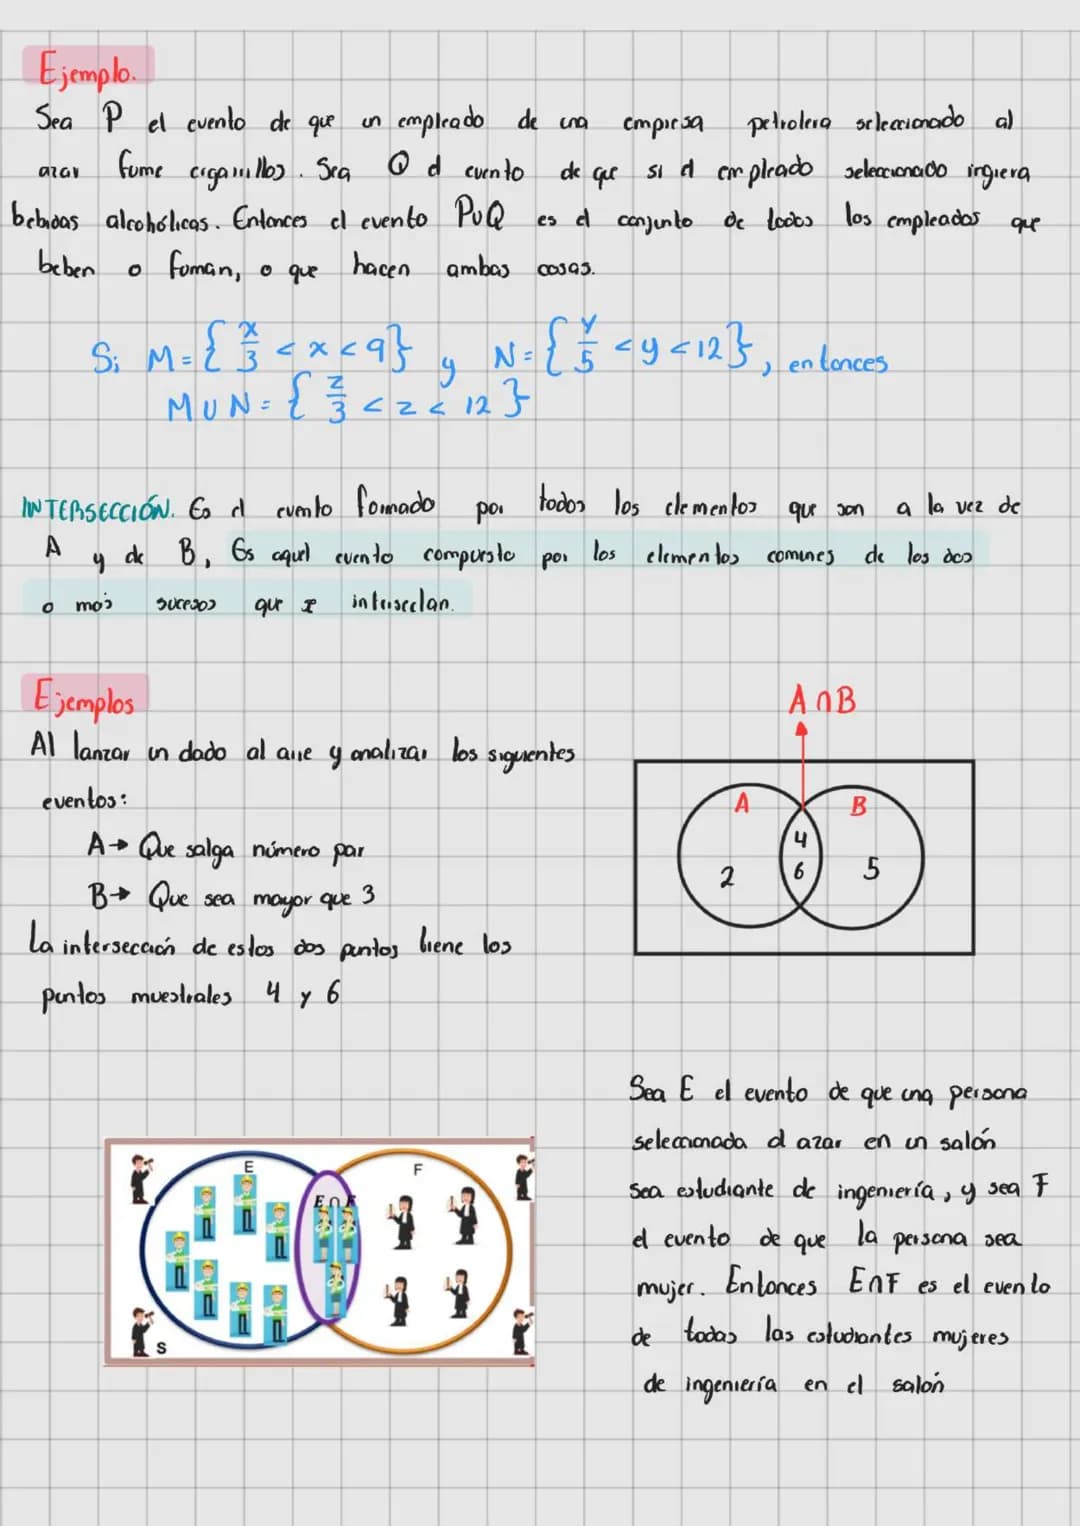 Ejemplo.
Sea P el evento de que un empleado de una empresa petrolera seleccionado al
azar fume cigarrillos. Sea Q el evento de que si el empleado seleccionado ingiera
bebidas alcohólicas. Entonces el evento PUQ es el conjunto de todos los empleados que
beben o fuman, o que hacen ambas cosas.
Si M = { x/3 < x < 9 } y N = { y/5 < y < 12 }, entonces
M U N = { z/3 < z < 12 }
INTERSECCIÓN. Es el evento formado por todos los elementos que son a la vez de
A y de B, Es aquel evento compuesto por los elementos comunes de los dos
o más sucesos que se intersectan.
Ejemplos
Al lanzar un dado al aire y analizar los siguientes
eventos:
A → Que salga número par
B → Que sea mayor que 3
La intersección de estos dos puntos tiene los
puntos muestrales 4 y 6
A ∩ B
A B
4
2 6 5
Sea E el evento de que una persona
seleccionada al azar en un salón
sea estudiante de ingeniería, y sea F
el evento de que la persona sea
mujer. Entonces E∩F es el evento
de todas las estudiantes mujeres
de ingeniería en el salón
E F
E ∩ F
S